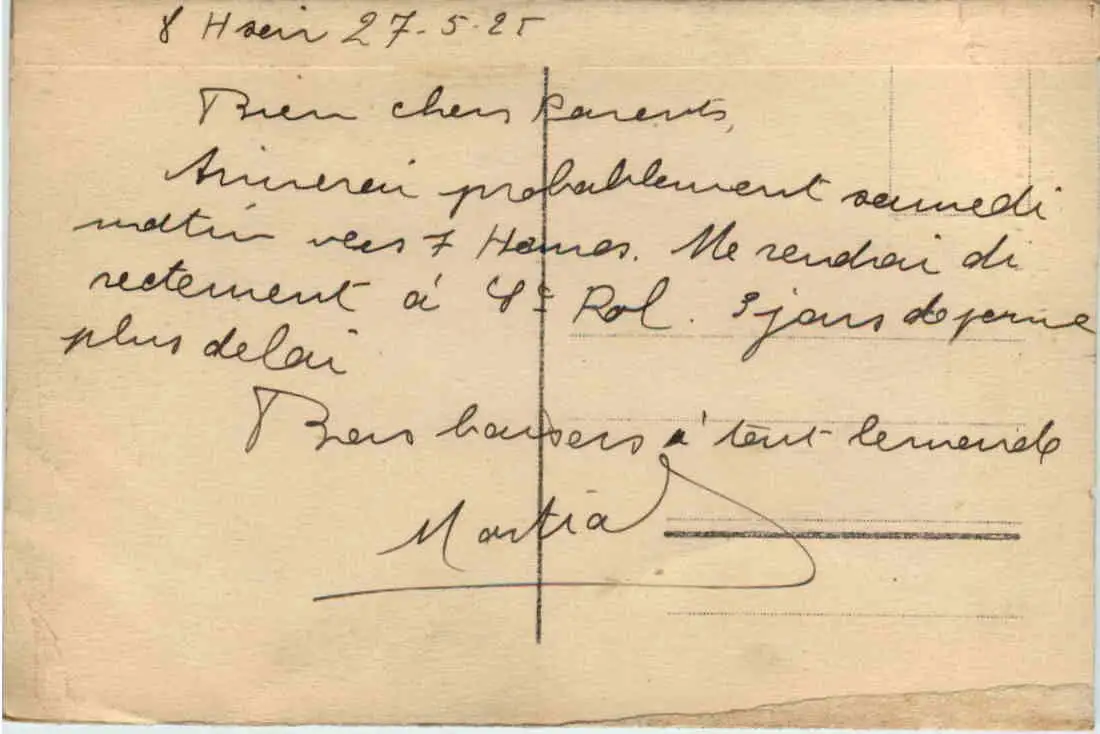 8 H soir 27-5-25
Bien chers Parents,
Arriverai probablement samedi
matin vers 7 Heures. Me rendrai di
rectement à Rol. 3 jours de perme
plus delai
Bons baisers à tout le monde
Martial